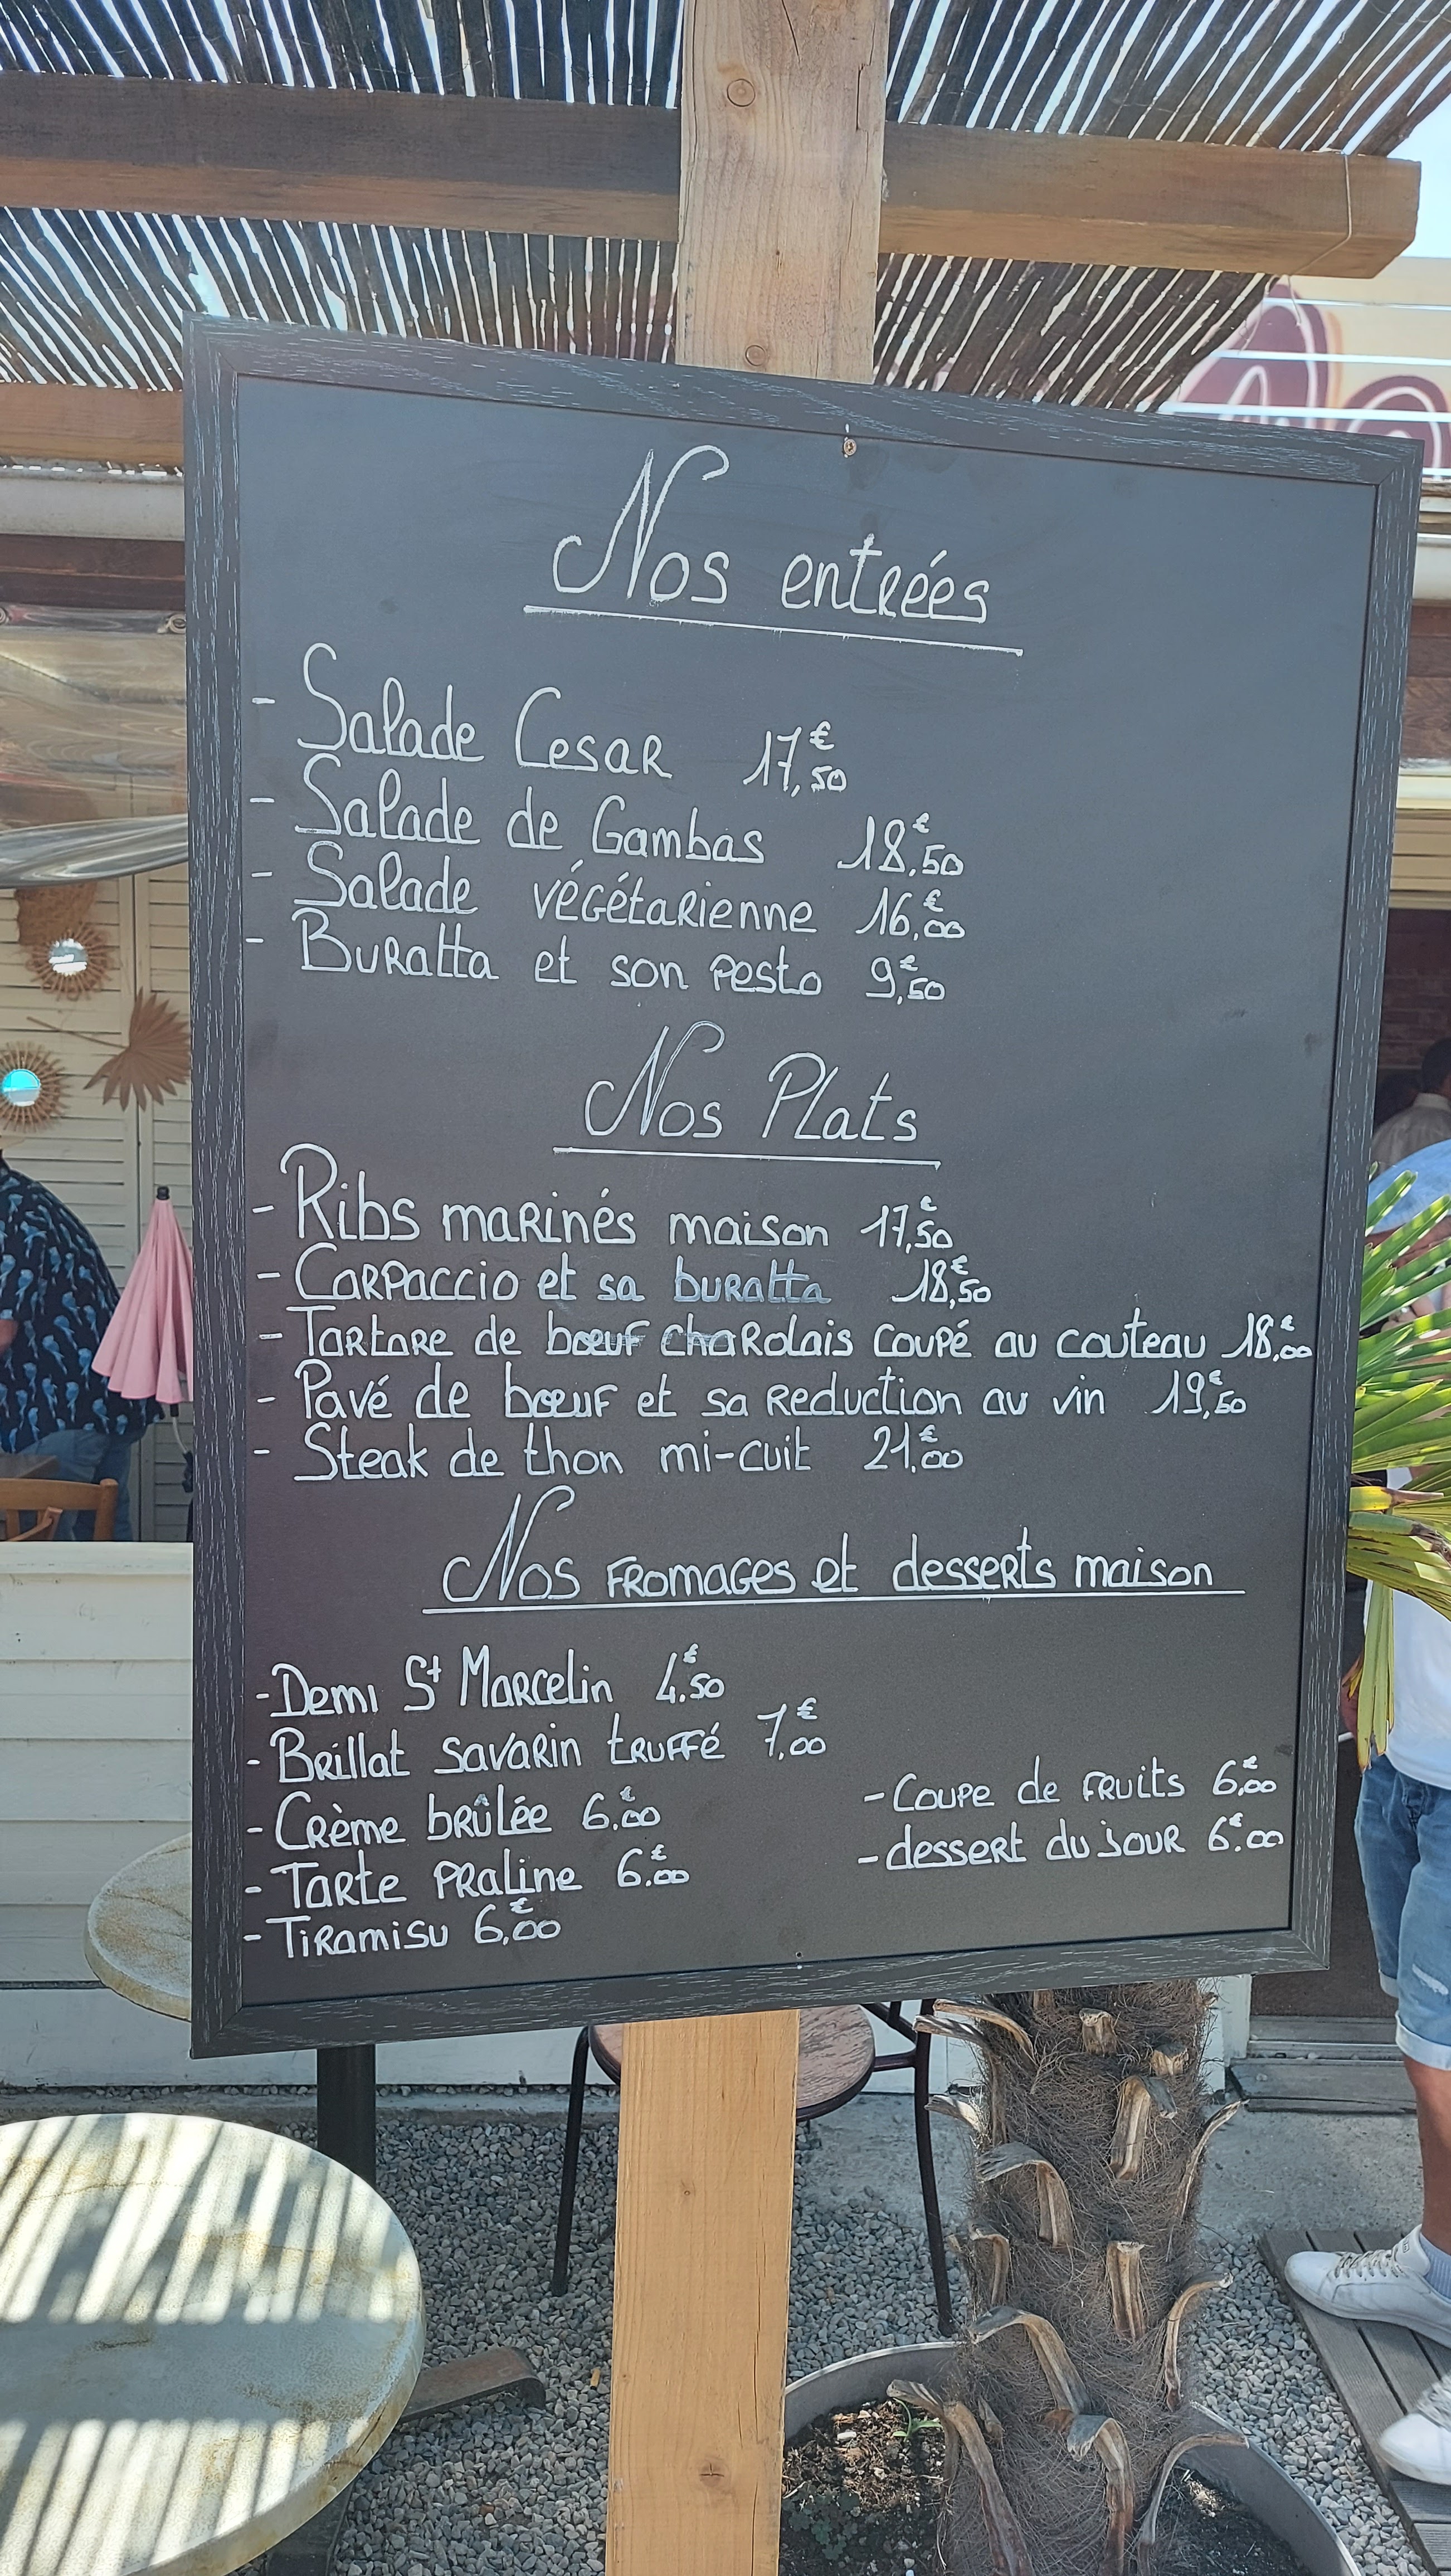 Nos entrées
- Salade Cesar 17,€50
- Salade de Gambas 18,€50
- Salade végétarienne 16,€00
- Buratta et son pesto 9,€50
Nos Plats
- Ribs marinés maison 17,€50
- Carpaccio et sa buratta 18,€50
- Tartare de bœuf charolais coupé au couteau 18,€00
- Pavé de bœuf et sa reduction au vin 19,€50
- Steak de thon mi-cuit 21,€00
Nos fromages et desserts maison
- Demi St Marcelin 4,€50
- Brillat savarin truffé 7,€00
- Crème brûlée 6,€00
- Tarte praline 6,€00
- Tiramisu 6,€00
- Coupe de fruits 6,€00
- dessert du jour 6,€00